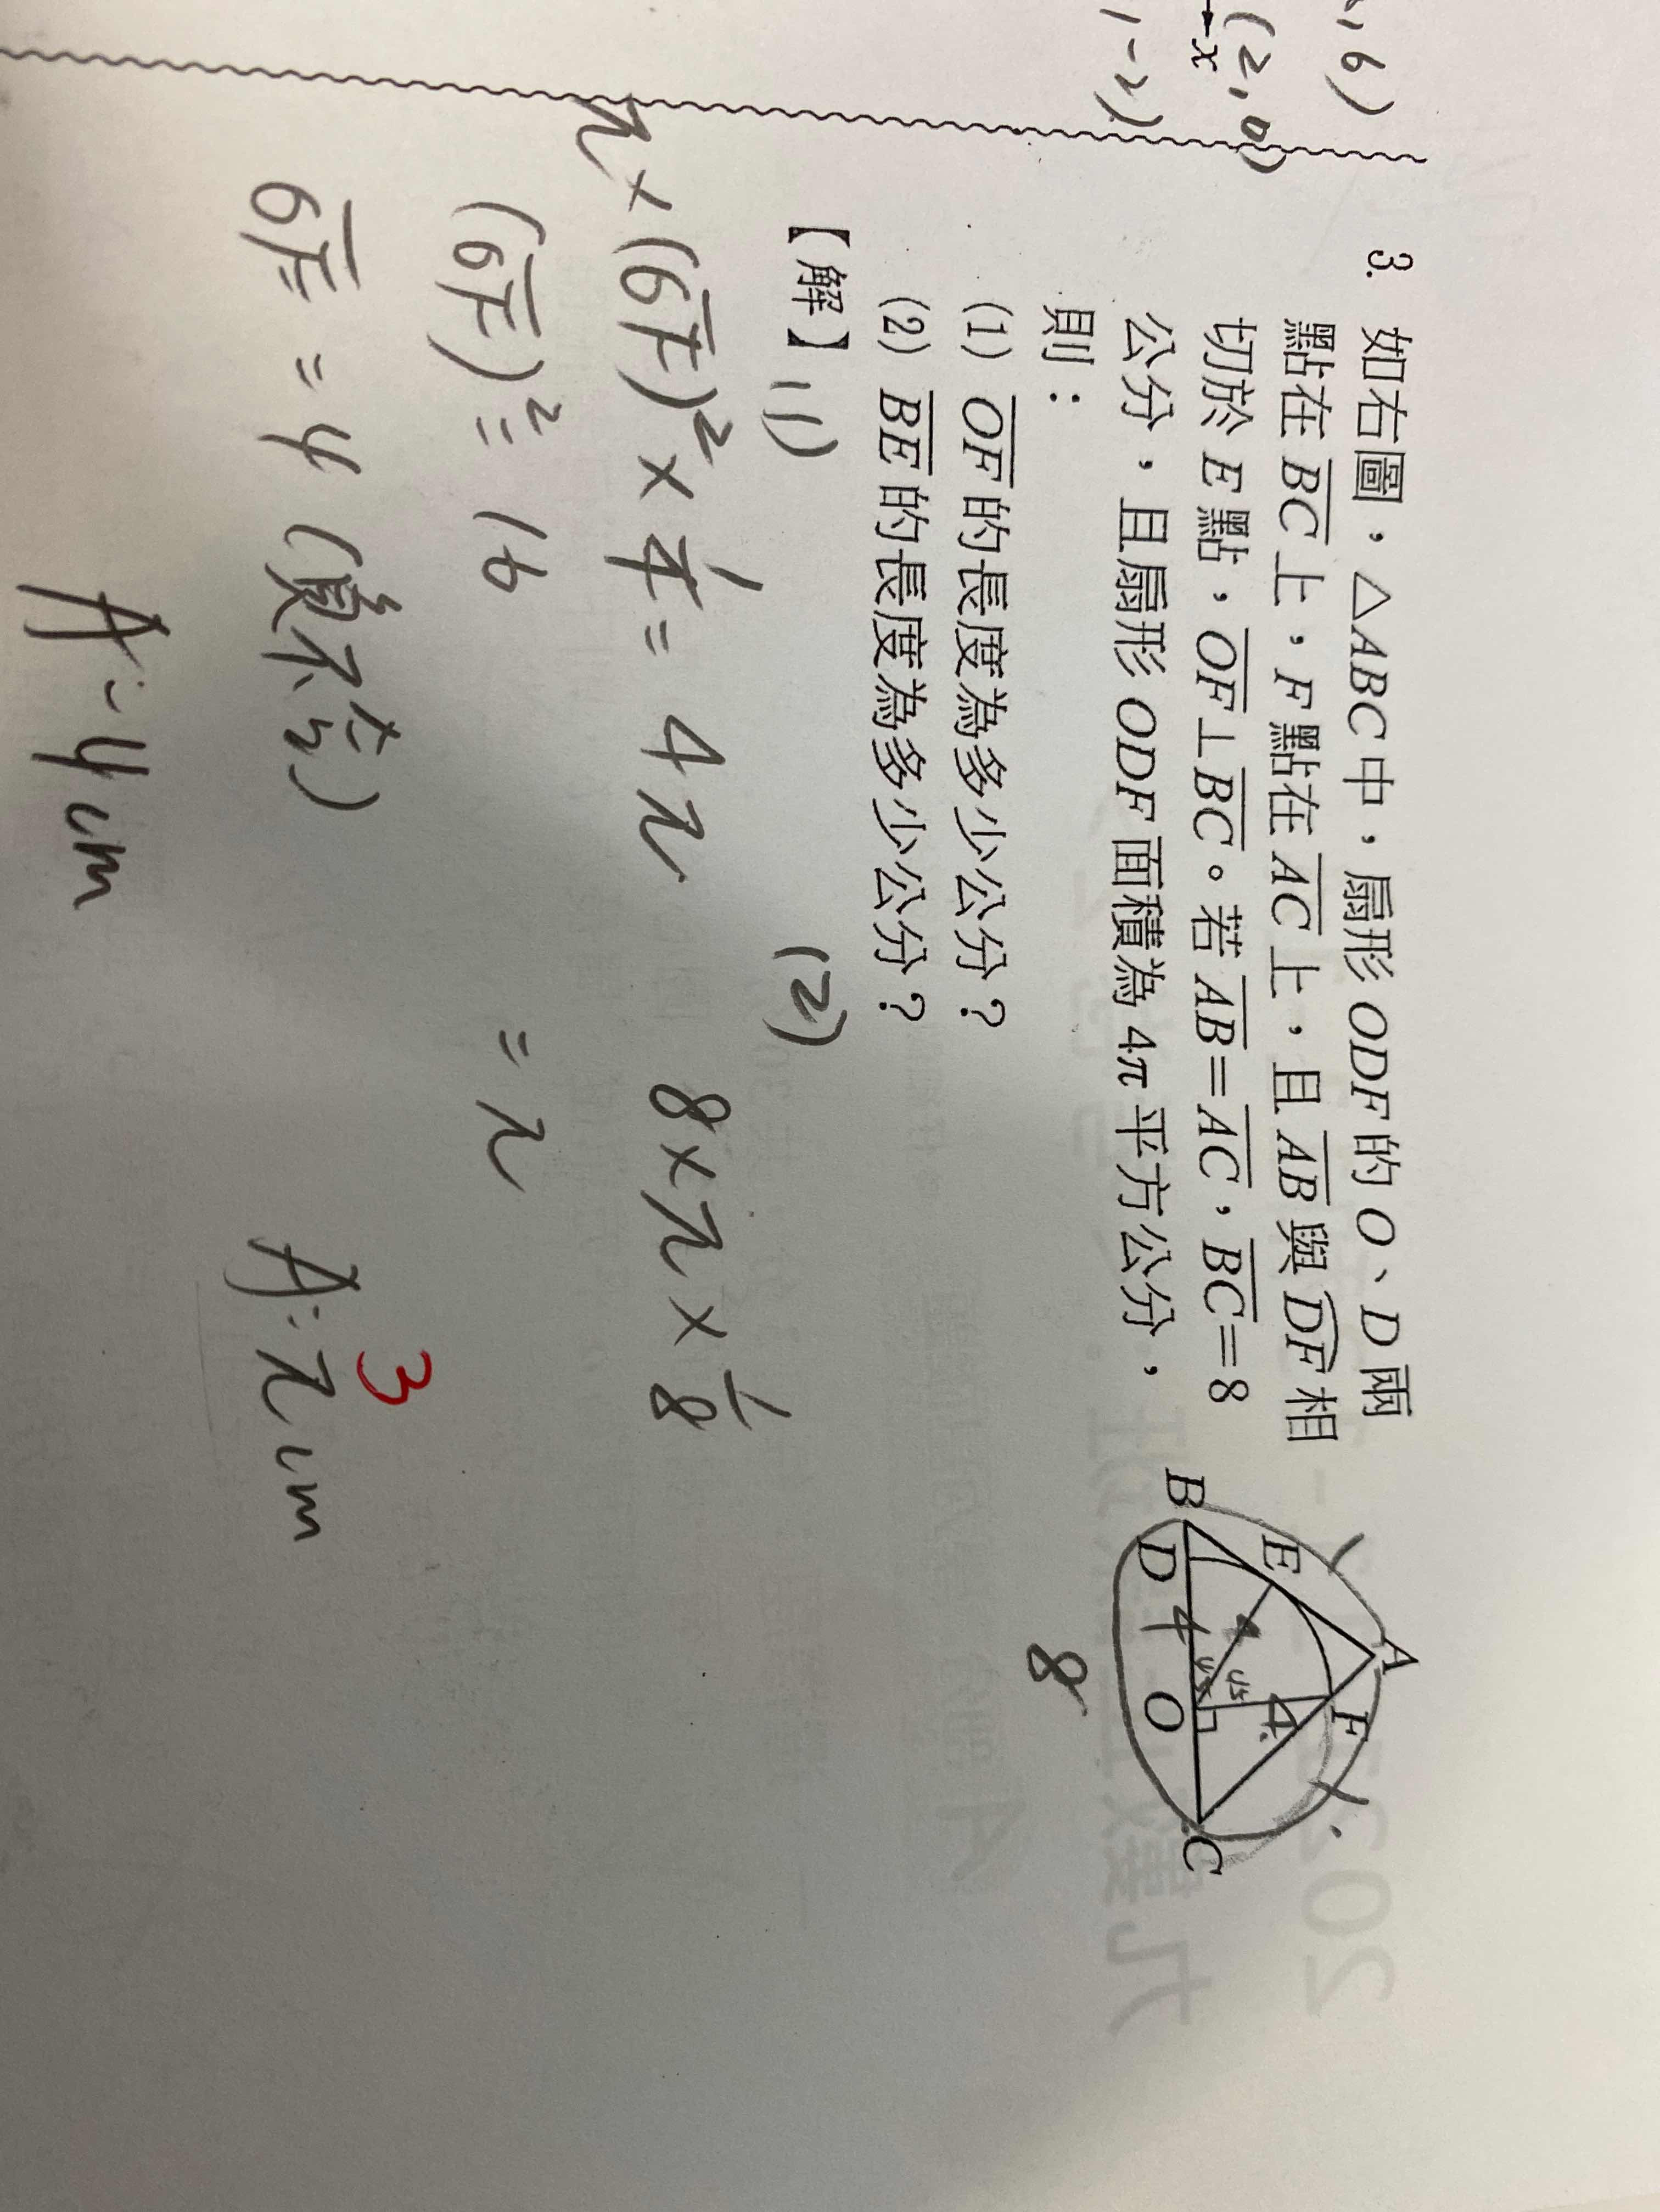 ,6)
(2,0)
x
1-2)
3. 如右圖，△ABC中，扇形ODF的O、D兩
點在BC上，F點在AC上，且AB與DF相
切於E點，OF⊥BC。若AB=AC，BC=8
公分，且扇形ODF面積為4π平方公分，
則：
(1) OF的長度為多少公分？
(2) BE的長度為多少公分？
A
E
F
B
D
4
O
4
C
8
【解】(1)
π×(OF)²×1/4=4π
(OF)²=16
OF=4 (負不合)
A:4cm
(2)
8×π×1/8
=π
3
A:π cm